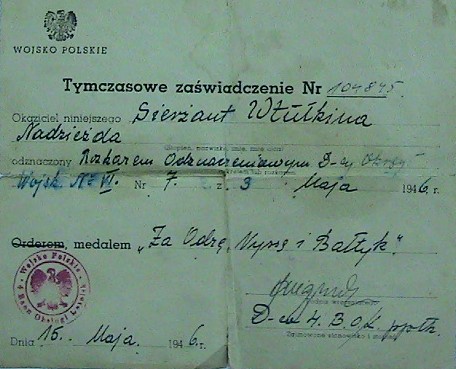 WOJSKO POLSKIE
Tymczasowe zaświadczenie Nr 104845
Okaziciel niniejszego Sierżant Wtułkina
Nadzieżda
(Stopień, nazwisko, imię, imię ojca)
odznaczony Rozkazem Odznaczeniowym D-cy Okręgu
Wojsk № VI. Nr 7. z 3 Maja 1946r.
Orderem, medalem „Za Odrę, Nysę i Bałtyk".
Wojsko Polskie
D-ca 4. B.O.L. ppłk.
Zajmowane stanowisko i
Dnia 15. Maja 1946.r.